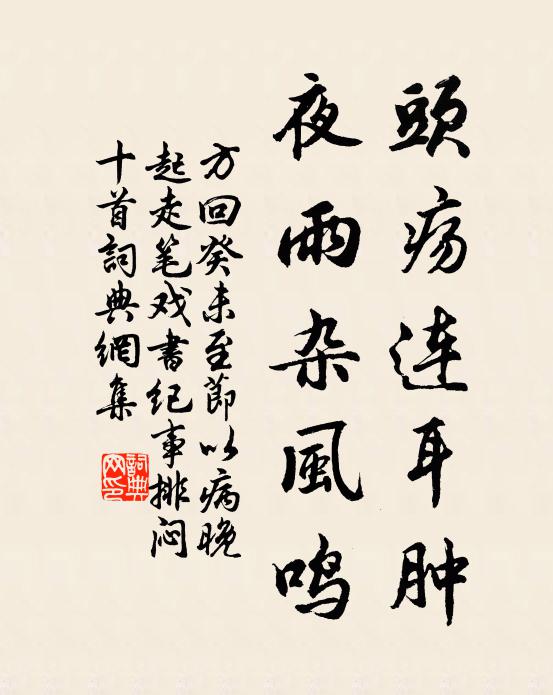 頭疡连耳肿
夜雨杂風鸣
方回癸未至節以病晚
起走笔戏書纪事排闷
十首詞典網集
詞典网印